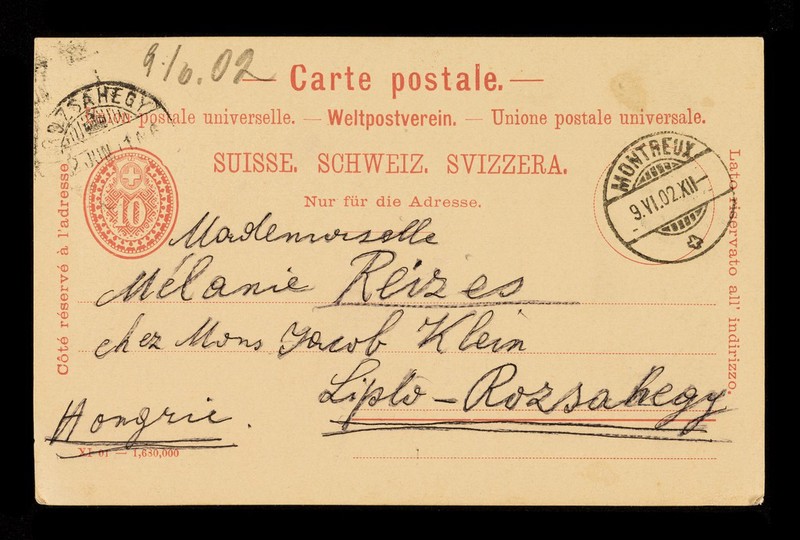 9/6.02
— Carte postale. —
Union postale universelle. — Weltpostverein. — Unione postale universale.
SUISSE. SCHWEIZ. SVIZZERA.
Nur für die Adresse.
ROZSAHEGY
JUN
MONTREUX
9.VI.02.XII
10
Côté réservé à l'adresse.
Lato riservato all' indirizzo.
Mademoiselle
Mélanie Reizes
chez Mons Jacob Klein
Lipto - Rozsahegy
Hongrie.
XI 01 — 1,680,000